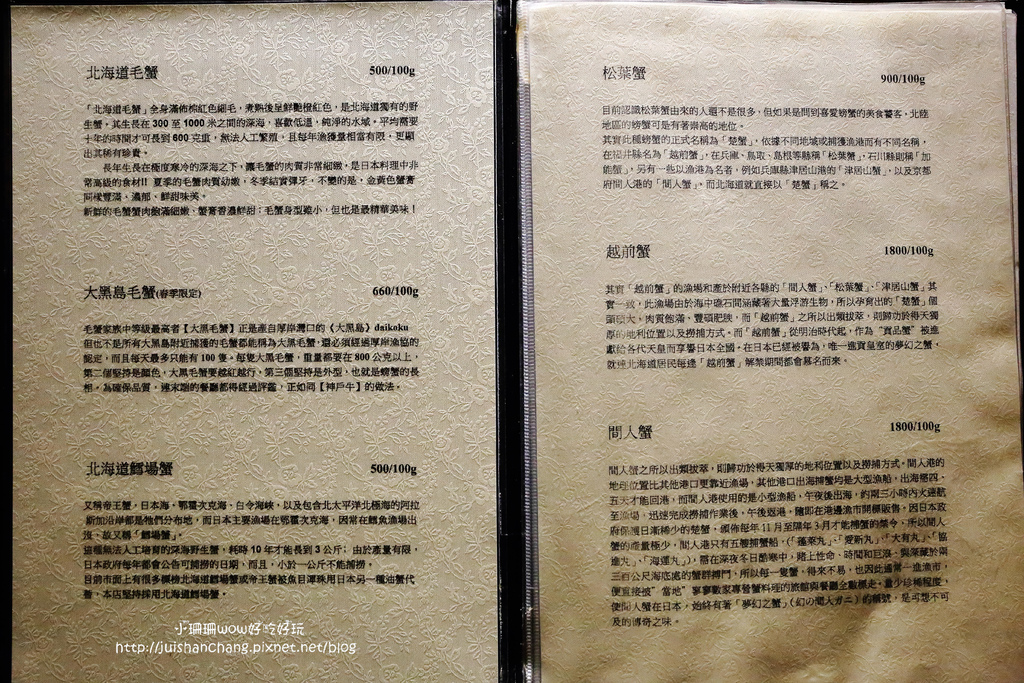 北海道毛蟹 500/100g
「北海道毛蟹」全身滿佈棕紅色細毛，煮熟後呈鮮艷橙紅色，是北海道獨有的野
生蟹。其生長在 300 至 1000 米之間的深海，喜歡低溫，純淨的水域。平均需要
十年的時間才可長到 600 克重，無法人工繁殖，且每年漁獲量相當有限，更顯
出其稀有珍貴。
長年生長在極度寒冷的深海之下，讓毛蟹的肉質非常細嫩，是日本料理中非
常高級的食材!! 夏季的毛蟹肉質幼嫩，冬季結實彈牙，不變的是，金黃色蟹膏
同樣豐滿、濃郁、鮮甜味美。
新鮮的毛蟹蟹肉飽滿細嫩、蟹膏香濃鮮甜；毛蟹身型雖小，但也是最精華美味！
大黑島毛蟹(春季限定) 660/100g
毛蟹家族中等級最高者【大黑毛蟹】正是產自厚岸灣口的《大黑島》daikoku
但也不是所有大黑島附近捕獲的毛蟹都能稱為大黑毛蟹，還必須經過厚岸漁協的
認定，而且每天最多只能有 100 隻。每隻大黑毛蟹，重量都要在 800 公克以上，
第二個堅持是顏色，大黑毛蟹要越紅越行，第三個堅持是外型，也就是螃蟹的長
相，為確保品質，連末端的餐廳都得經過評鑑，正如同【神戶牛】的做法。
北海道鱈場蟹 500/100g
又稱帝王蟹，日本海、鄂霍次克海、白令海峽，以及包含北太平洋北極海的阿拉
斯加沿岸都是牠們分布地，而日本主要漁場在鄂霍次克海，因常在鱈魚漁場出
沒，故又稱「鱈場蟹」。
這種無法人工培育的深海野生蟹，耗時 10 年才能長到 3 公斤；由於產量有限，
日本政府每年都會公告可捕撈的日期，而且，小於一公斤不能捕撈。
目前市面上有很多標榜北海道鱈場蟹或帝王蟹被魚目渾珠用日本另一種油蟹代
替，本店堅持採用北海道鱈場蟹。
松葉蟹 900/100g
目前認識松葉蟹由來的人還不是很多，但如果是問到喜愛螃蟹的美食饕客，北陸
地區的螃蟹可是有著崇高的地位。
其實此種螃蟹的正式名稱為「楚蟹」，依據不同地域或捕獲漁港而有不同名稱，
在福井縣名為「越前蟹」，在兵庫、鳥取、島根等縣稱「松葉蟹」，石川縣則稱「加
能蟹」，另有一些以漁港為名者，例如兵庫縣津居山港的「津居山蟹」，以及京都
府間人港的「間人蟹」。而北海道就直接以「楚蟹」稱之。
越前蟹 1800/100g
其實「越前蟹」的漁場和產於附近各縣的「間人蟹」、「松葉蟹」、「津居山蟹」其
實一致，此漁場由於海中礁石間涵藏著大量浮游生物，所以孕育出的「楚蟹」個
頭碩大，肉質飽滿、豐碩肥腴，而「越前蟹」之所以出類拔萃，則歸功於得天獨
厚的地利位置以及撈捕方式。而「越前蟹」從明治時代起，作為“貢品蟹”被進
獻給各代天皇而享譽日本全國。在日本已經被譽為，唯一進貢皇室的夢幻之蟹，
就連北海道居民每逢「越前蟹」解禁期間都會慕名而來。
間人蟹 1800/100g
間人蟹之所以出類拔萃，則歸功於得天獨厚的地利位置以及撈捕方式。間人港的
地理位置比其他港口更靠近漁場，其他港口出海捕蟹均是大型漁船，出海需四、
五天才能回港，而間人港使用的是小型漁船，午夜後出海，約兩三小時內火速航
至漁場，迅速完成撈捕作業後，午後返港，隨即在港邊漁市開標販售，因日本政
府保護日漸稀少的楚蟹，頒佈每年 11 月至隔年 3 月才能捕蟹的禁令，所以間人
蟹的產量極少，間人港只有五艘捕蟹船，(「蓬萊丸」、「愛新丸」、「大有丸」、「協
進丸」、「海運丸」)，需在深夜冬日酷寒中，賭上性命、時間和巨浪，與深藏於兩
三百公尺海底處的蟹群搏鬥，所以每一隻蟹，得來不易，也因此通常一進漁市，
便直接被“當地”寥寥數家專營蟹料理的旅館與餐廳全數標走。量少珍稀程度，
使間人蟹在日本，始終有著「夢幻之蟹」(幻の間人ガニ)的稱號，是可想不可
及的傳奇之味。
小珊珊wow好吃好玩
http://juishanchang.pixnet.net/blog